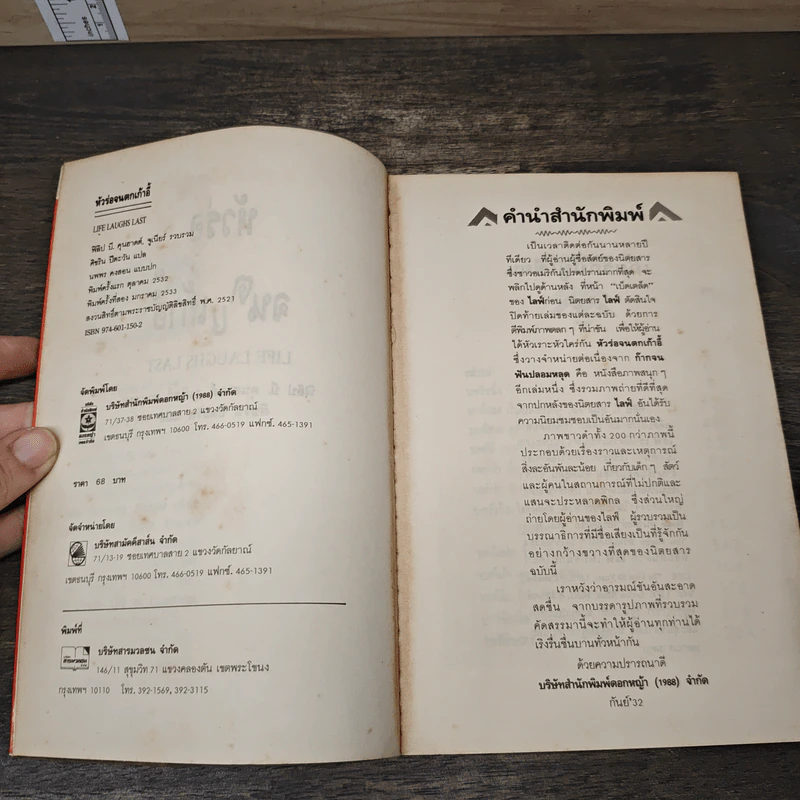 หัวร่อจนตกเก้าอี้
LIFE LAUGHS LAST
ฟิลิป บี. คุนฮาดต์, จูเนียร์ รวบรวม
ศิขริน ปีตะวัน แปล
นพพร คงสอน แบบปก
พิมพ์ครั้งแรก ตุลาคม 2532
พิมพ์ครั้งที่สอง มกราคม 2533
สงวนลิขสิทธิ์ตามพระราชบัญญัติลิขสิทธิ์ พ.ศ. 2521
ISBN 974-601-150-2
จัดพิมพ์โดย
บริษัทสำนักพิมพ์ดอกหญ้า (1988) จำกัด
71/37-38 ซอยเทศบาลสาย 2 แขวงวัดกัลยาณ์
เขตธนบุรี กรุงเทพฯ 10600 โทร. 466-0519 แฟกซ์. 465-1391
ราคา 68 บาท
จัดจำหน่ายโดย
บริษัทสามัคคีสาส์น จำกัด
71/13-19 ซอยเทศบาลสาย 2 แขวงวัดกัลยาณ์
เขตธนบุรี กรุงเทพฯ 10600 โทร. 466-0519 แฟกซ์. 465-1391
พิมพ์ที่
บริษัทสารมวลชน จำกัด
146/11 สุขุมวิท 71 แขวงคลองตัน เขตพระโขนง
กรุงเทพฯ 10110 โทร. 392-1569, 392-3115
คำนำสำนักพิมพ์
เป็นเวลาติดต่อกันนานหลายปี
ทีเดียว ที่ผู้อ่านผู้ซื่อสัตย์ของนิตยสาร
ซึ่งชาวอเมริกันโปรดปรานมากที่สุด จะ
พลิกไปดูด้านหลัง ที่หน้า "เบ็ดเตล็ด"
ของ ไลฟ์ก่อน นิตยสาร ไลฟ์ ตัดสินใจ
ปิดท้ายเล่มของแต่ละฉบับ ด้วยการ
ตีพิมพ์ภาพตลก ๆ ที่น่าขัน เพื่อให้ผู้อ่าน
ได้หัวเราะหัวใคร่กัน หัวร่อจนตกเก้าอี้
ซึ่งวางจำหน่ายต่อเนื่องจาก ก๊ากจน
ฟันปลอมหลุด คือ หนังสือภาพสนุก ๆ
อีกเล่มหนึ่ง ซึ่งรวมภาพถ่ายที่ดีที่สุด
จากปกหลังของนิตยสาร ไลฟ์ อันได้รับ
ความนิยมชมชอบเป็นอันมากนั่นเอง
ภาพขาวดำทั้ง 200 กว่าภาพนี้
ประกอบด้วยเรื่องราวและเหตุการณ์
สิ่งละอันพันละน้อย เกี่ยวกับเด็ก ๆ สัตว์
และผู้คนในสถานการณ์ที่ไม่ปกติและ
แสนจะประหลาดพิกล ซึ่งส่วนใหญ่
ถ่ายโดยผู้อ่านของไลฟ์ ผู้รวบรวมเป็น
บรรณาธิการที่มีชื่อเสียงเป็นที่รู้จักกัน
อย่างกว้างขวางที่สุดของนิตยสาร
ฉบับนี้
เราหวังว่าอารมณ์ขันอันสะอาด
สดชื่น จากบรรดารูปภาพที่รวบรวม
คัดสรรมานี้จะทำให้ผู้อ่านทุกท่านได้
เริงรื่นชื่นบานทั่วหน้ากัน
ด้วยความปรารถนาดี
บริษัทสำนักพิมพ์ดอกหญ้า (1988) จำกัด
กันย์'32